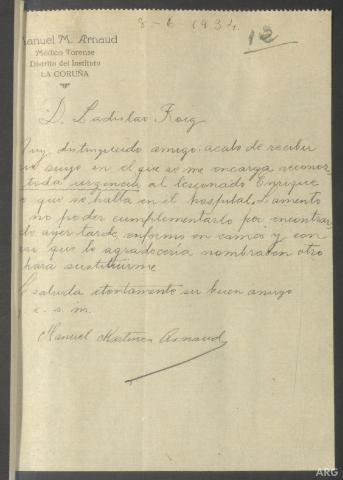 8-6-1934
12
anuel M. Arnaud
Médico Forense
Distrito del Instituto
LA CORUÑA
D. Ladislao Roig
uy distinguido amigo: acabo de recibir
suyo en el que se me encarga reconoz
toda urgencia al lesionado Enrique
que se halla en el hospital. Lamento
no poder cumplimentarlo por encontrar
ayer tarde enfermo en cama y con
que le agradecería nombrasen otro
para sustituirme
saluda atentamente su buen amigo
e. s. m.
Manuel Martínez Arnaud
ARG